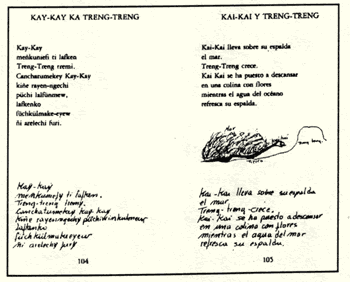 KAY-KAY KA TRENG-TRENG
Kay-Kay
meñkuniefi ti lafken
Treng-Treng tremi.
Cancharumekey Kay-Kay
kiñe rayen-ngechi
püchi lalfünmew,
lafkenko
füchkülmake-eyew
ñi arelechi furi.
Kay-kay
ti lafken.
Treng-treng
Cancharumekey kay kay
Kiñe rayen-ngechi püchi
lafkenko
füchkülmakeeyew
ñi arelechi furi
104
KAI-KAI Y TRENG-TRENG
Kai-Kai lleva sobre su espalda
el mar.
Treng-Treng crece.
Kai Kai se ha puesto a descansar
en una colina con flores
mientras el agua del océano
refresca su espalda.
Mar
Kai-Kai lleva sobre su espalda
el mar
Treng-treng crece.
Kai-Kai se ha puesto a descansar
en una colina con flores
mientras el agua del mar
refresca su espalda.
105